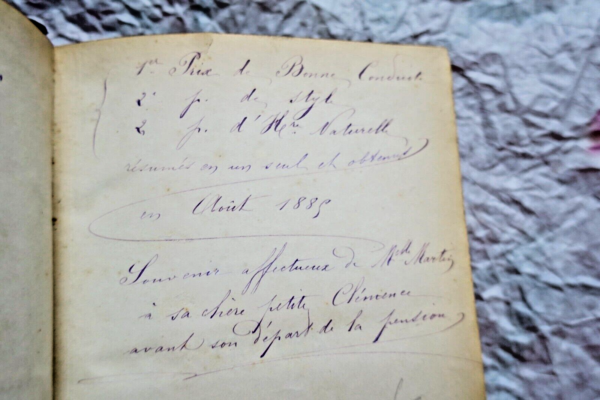 1er Prix de Bonne Conduite
2e p. de style
2 p. d'Hre Naturelle
résumés en un seul et obtenus
en Août 1885
Souvenir affectueux de Melle Martin
à sa chère petite Clémence
avant son départ de la pension